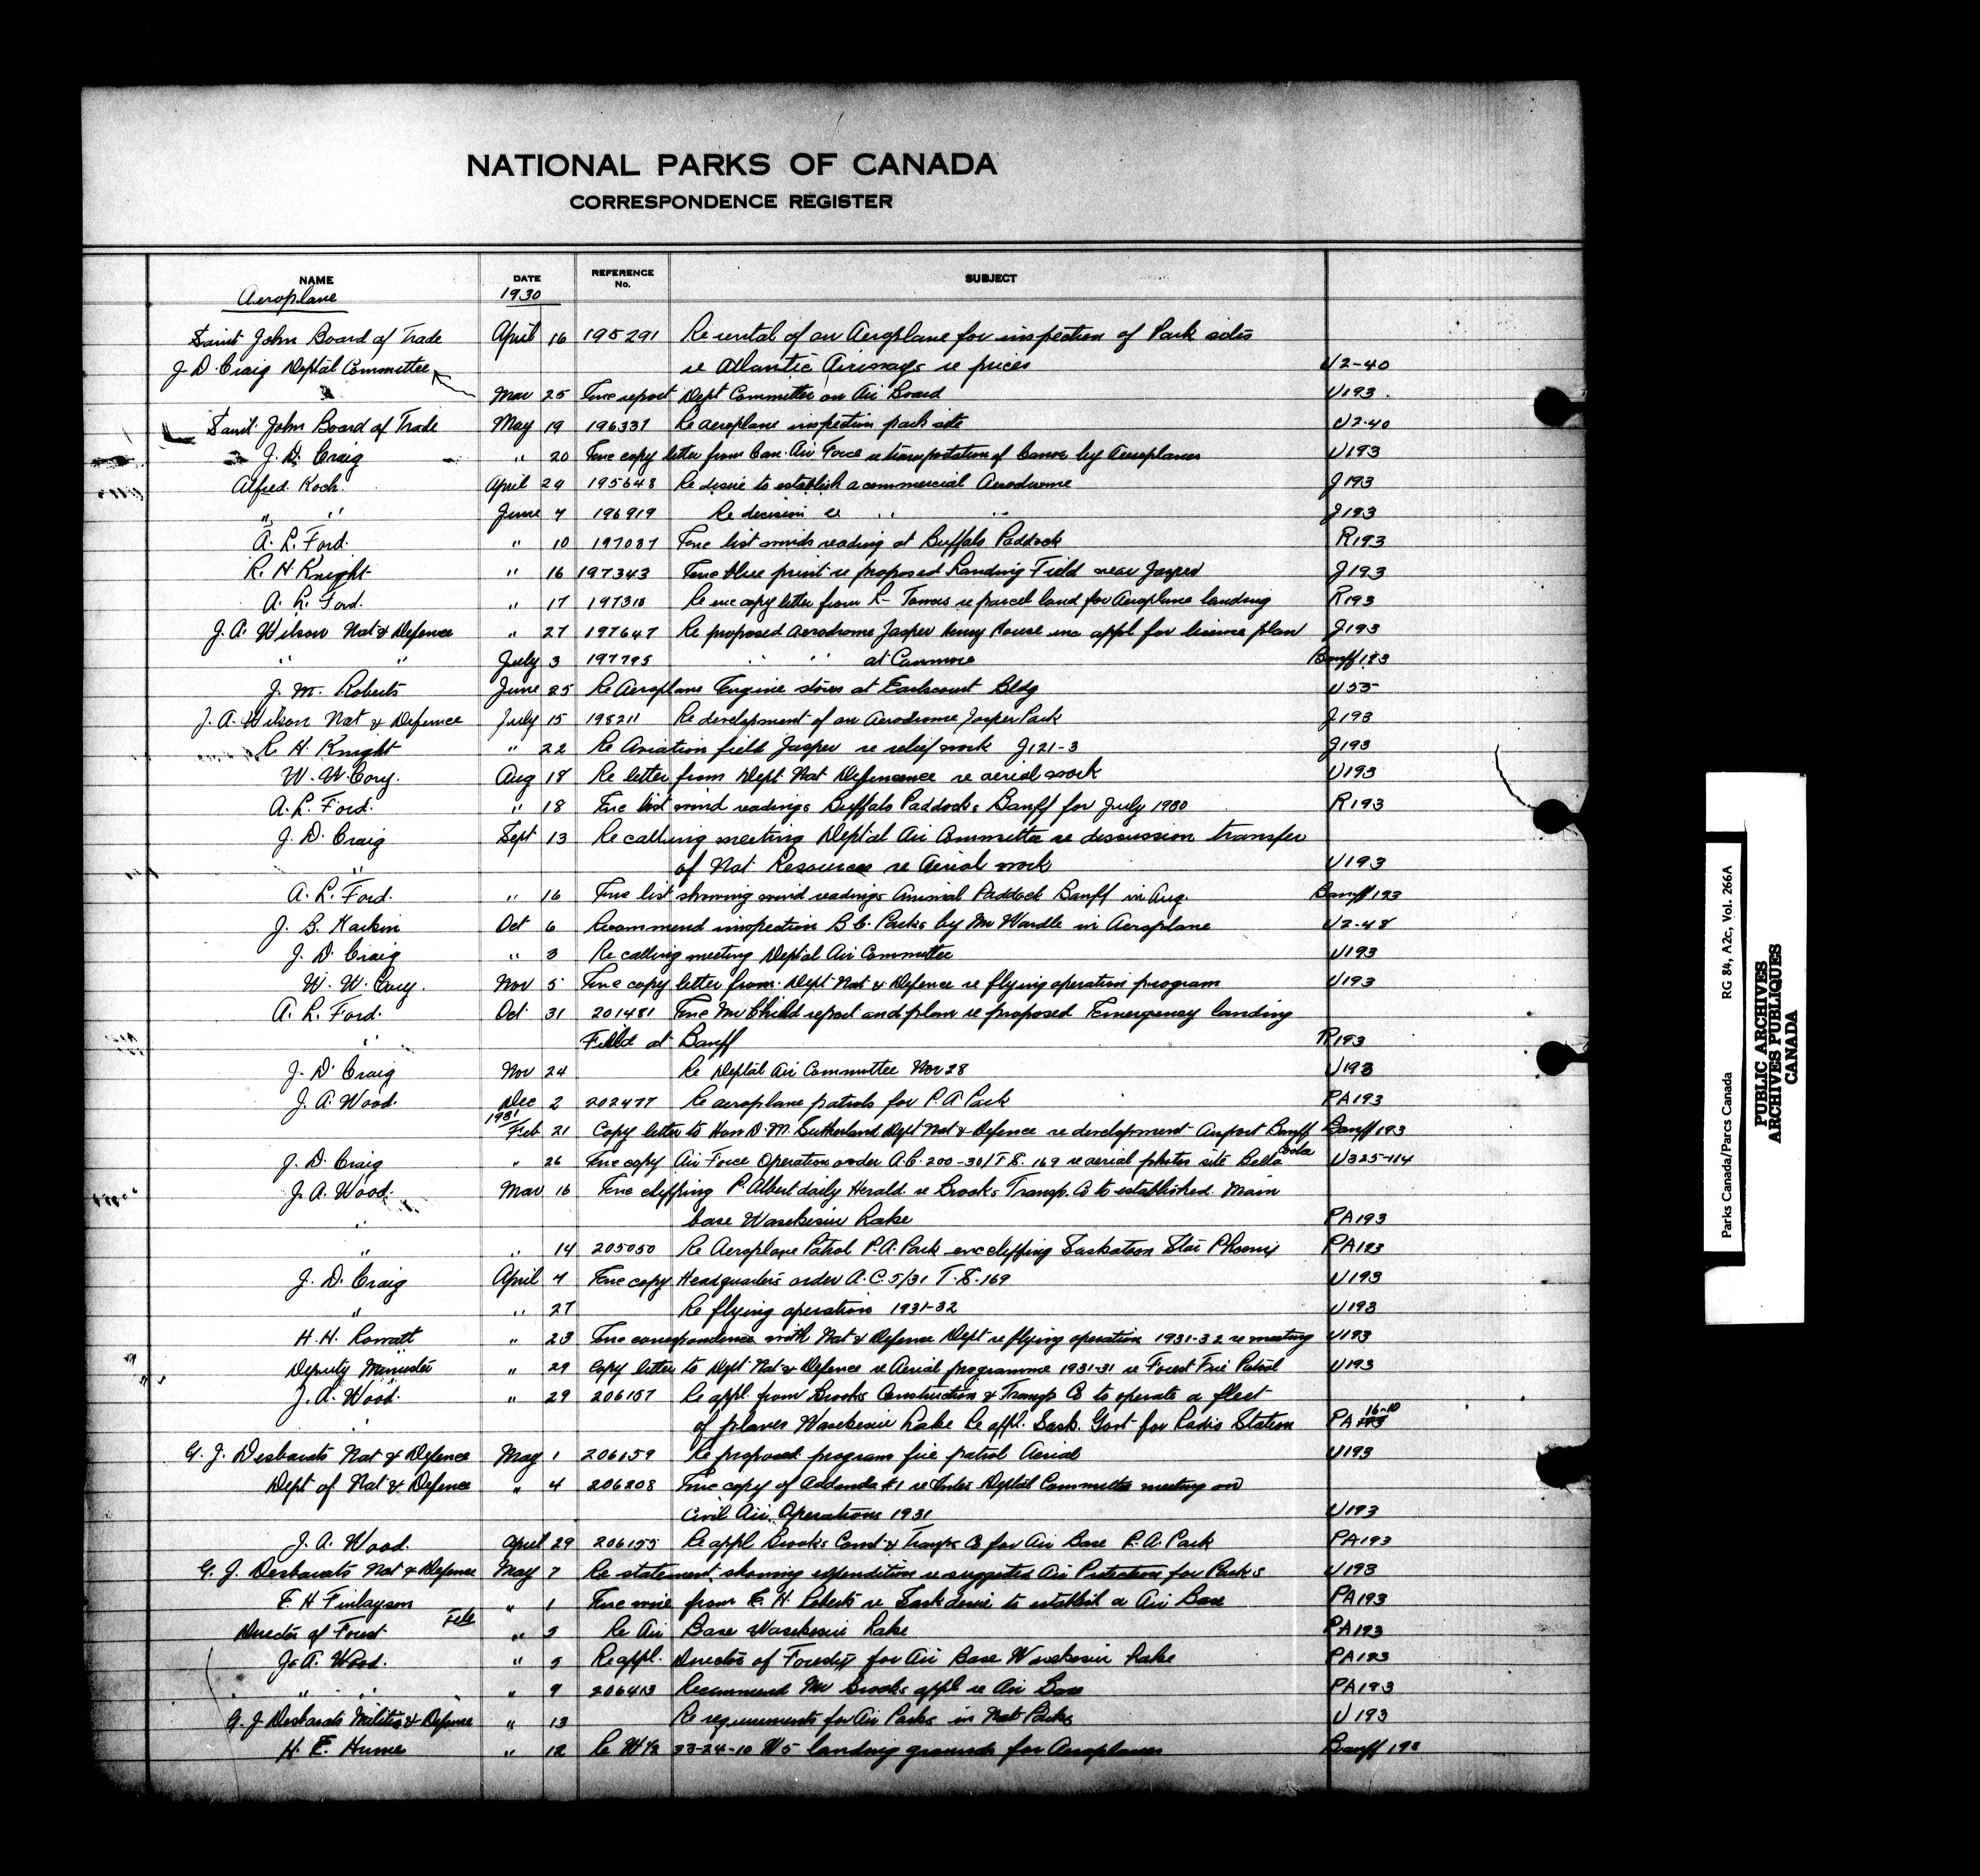 NATIONAL PARKS OF CANADA
CORRESPONDENCE REGISTER
NAME DATE REFERENCE No. SUBJECT
Aeroplane 1930
Saint John Board of Trade April 16 195291 Re rental of an Aeroplane for inspection of Park sites
J D. Craig Deptal Committee re Atlantic Airways re prices U2-40
Mar 25 Enc report Dept Committee on Air Board U193.
Saint John Board of Trade May 19 196337 Re aeroplane inspection park site U2-40
J. D. Craig " 20 Enc copy letter from Can. Air Force re transportation of Canoe by Aeroplanes U193
Alfred Koch. April 24 195648 Re desire to establish a commercial Aerodrome J193
" " June 7 196919 Re decision re " " J193
A. L. Ford. " 10 197087 Enc list winds reading at Buffalo Paddock R193
R. H. Knight " 16 197343 Enc blue print re proposed Landing Field near Jasper J193
A. L. Ford. " 17 197310 Re enc copy letter from L- Tomas re parcel land for Aeroplane landing R193
J. A. Wilson Nat & Defence " 27 197647 Re proposed Aerodrome Jasper Henry House enc appl for license plan J193
" " July 3 197795 " " at Canmore Banff 193
J. M. Roberts June 25 Re Aeroplane Engine stores at Earlscourt Bldg U55
J. A. Wilson Nat & Defence July 15 198211 Re development of an Aerodrome Jasper Park J193
R. H. Knight " 22 Re Aviation field Jasper re relief work J121-3 J193
W. W. Cory. Aug 18 Re letter from Dept Nat Defencence re aerial work U193
A. L. Ford. " 18 Enc list wind readings Buffalo Paddocks Banff for July 1930 R193
J. D. Craig Sept 13 Re calling meeting Deptal Air Committee re discussion transfer
" of Nat Resources re Aerial work U193
A. L. Ford. " 16 Enc list showing wind readings Animal Paddock Banff in Aug. Banff 193
J. B. Harkin Oct 6 Recommend inspection B.C. Parks by Mr Wardle in Aeroplane U2-48
J. D. Craig " 3 Re calling meeting Deptal Air Committee U193
W. W. Cory. Nov 5 Enc copy letter from Dept Nat & Defence re flying operation program U193
A. L. Ford. Oct 31 201481 Enc Mr Child report and plan re proposed Emergency landing
" Field at Banff R193
J. D. Craig Nov 24 Re Deptal Air Committee Nov 28 U193
J. A. Wood. Dec 2 202477 Re aeroplane patrols for P.A. Park PA193
1931 Feb 21 Copy letter to Hon D. M. Sutherland Dept Nat & Defence re development Airport Banff Banff 193
J. D. Craig " 26 Enc copy Air Force Operation order A.C. 200-30/T.S. 169 re aerial photos site Bella Coola U325-114
J. A. Wood. Mar 16 Enc clipping P. Albert daily Herald re Brooks Transp. Co to established Main
" base Waskesiu Lake PA193
" " 14 205050 Re Aeroplane Patrol P.A. Park enc clipping Saskatoon Star Phoenix PA193
J. D. Craig April 7 Enc copy Headquarters order A.C. 5/31 T.S. 169 U193
" " 27 Re flying operation 1931-32 U193
H. H. Rowatt " 23 Enc correspondence with Nat & Defence Dept re flying operation 1931-32 re meeting U193
Deputy Minister " 29 Copy letter to Dept Nat & Defence re Aerial programme 1931-31 re Forest Fire Patrol U193
J. A. Wood. " 29 206157 Re appl. from Brooks Construction & Transp Co to operate a fleet
" of planes Waskesiu Lake Re appl. Sask. Govt for Radio Station PA 16-10
G. J. Desbarats Nat & Defence May 1 206159 Re proposed program fire patrol Aerial U193
Dept of Nat & Defence " 4 206208 Enc copy of Addenda #1 re Inter Deptal Committee meeting on
Civil Air Operations 1931 U193
J. A. Wood. April 29 206155 Re appl Brooks Const & Transp Co for Air Base P.A. Park PA193
G. J. Desbarats Nat & Defence May 7 Re statement showing expenditure re suggested Air Protection for Parks U193
E. H Finlayson " 1 Enc wire from E. H. Roberts re Sask desire to establish a Air Base PA193
Director of Forest " 5 Re Air Base Waskesiu Lake PA193
J. A. Wood. " 5 Re appl. Director of Forestry for Air Base Waskesiu Lake PA193
" " " 9 206413 Recommend Mr Brooks appl re Air Base PA193
G. J Desbarats Militia & Defense " 13 Re requirements for Air Parks in Nat Parks U193
H. E. Hume " 12 Re W½ 33-24-10 W5 landing grounds for Aeroplanes Banff 193
Parks Canada/Parcs Canada RG 84, A2c, Vol. 266A
PUBLIC ARCHIVES
ARCHIVES PUBLIQUES
CANADA